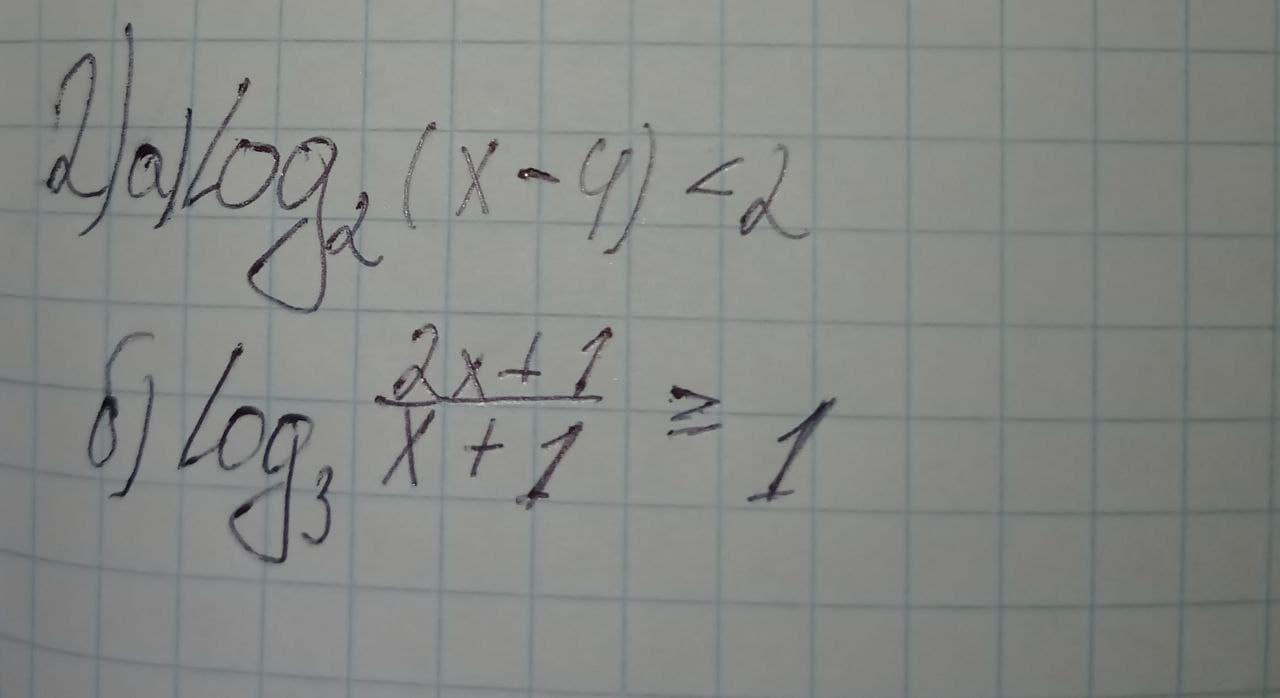 2) а) log₂(x-4) <2
б) log₃ (2x+1)/(x+1) ≥ 1